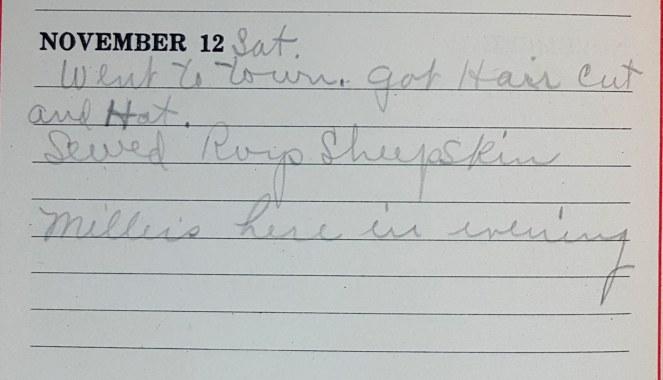 NOVEMBER 12 Sat.
Went to town. got Hair cut
and Hat.
Sewed Roys Sheepskin
Millers here in evening